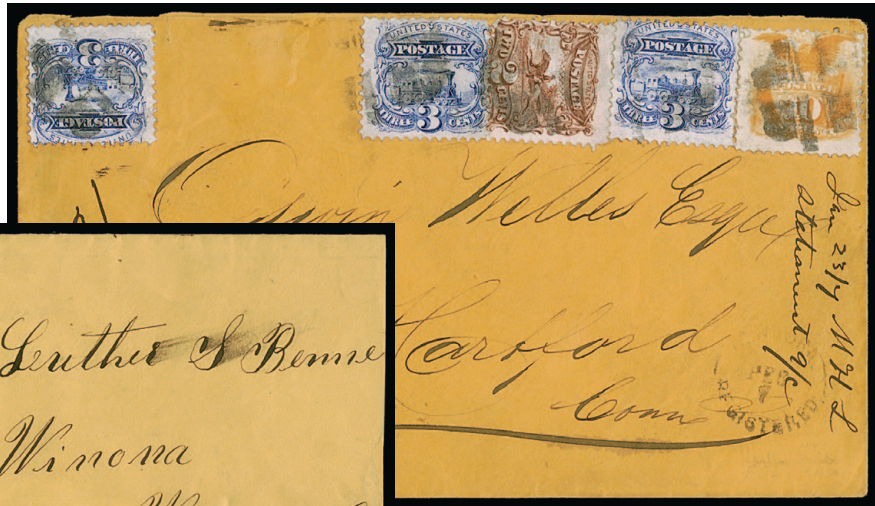 UNITED STATES
POSTAGE
3
THREE CENTS
UNITED STATES
POSTAGE
3
THREE CENTS
POSTAGE
TWO CENTS
UNITED STATES
POSTAGE
3
THREE CENTS
POSTAGE
10
Edwin Welles Esqre
Hartford
Conn
Jan 23/7 M H L
statement a/c
REGISTERED
Leuther S Benne
Winona